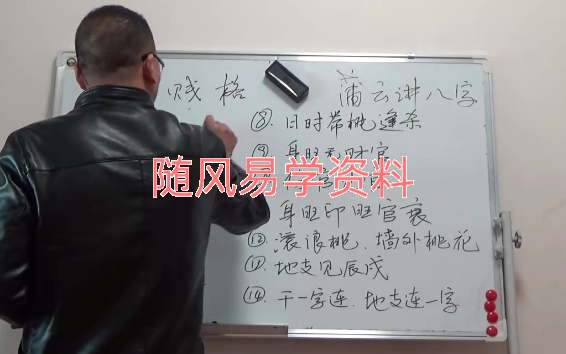 贱格 蒲云讲八字
⑧.日时带桃逢杀
⑨.身旺无财官
随风易学资料
身旺印旺官衰
⑫.滚浪桃.墙外桃花
⑬.地支见辰戌
⑭.干一字连.地支连一字